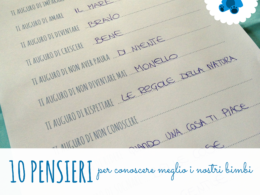 TI AUGURO DI AMARE IL MARE
TI AUGURO DI DIVENTARE BRAVO
TI AUGURO DI CRESCERE BENE
TI AUGURO DI NON AVER PAURA DI NIENTE
TI AUGURO DI NON DIVENTARE MAI MONELLO
TI AUGURO DI RISPETTARE LE REGOLE DELLA NATURA
TI AUGURO DI NON CONOSCERE
UNA COSA TI PIACE
10 PENSIERI per conoscere meglio i nostri bimbi